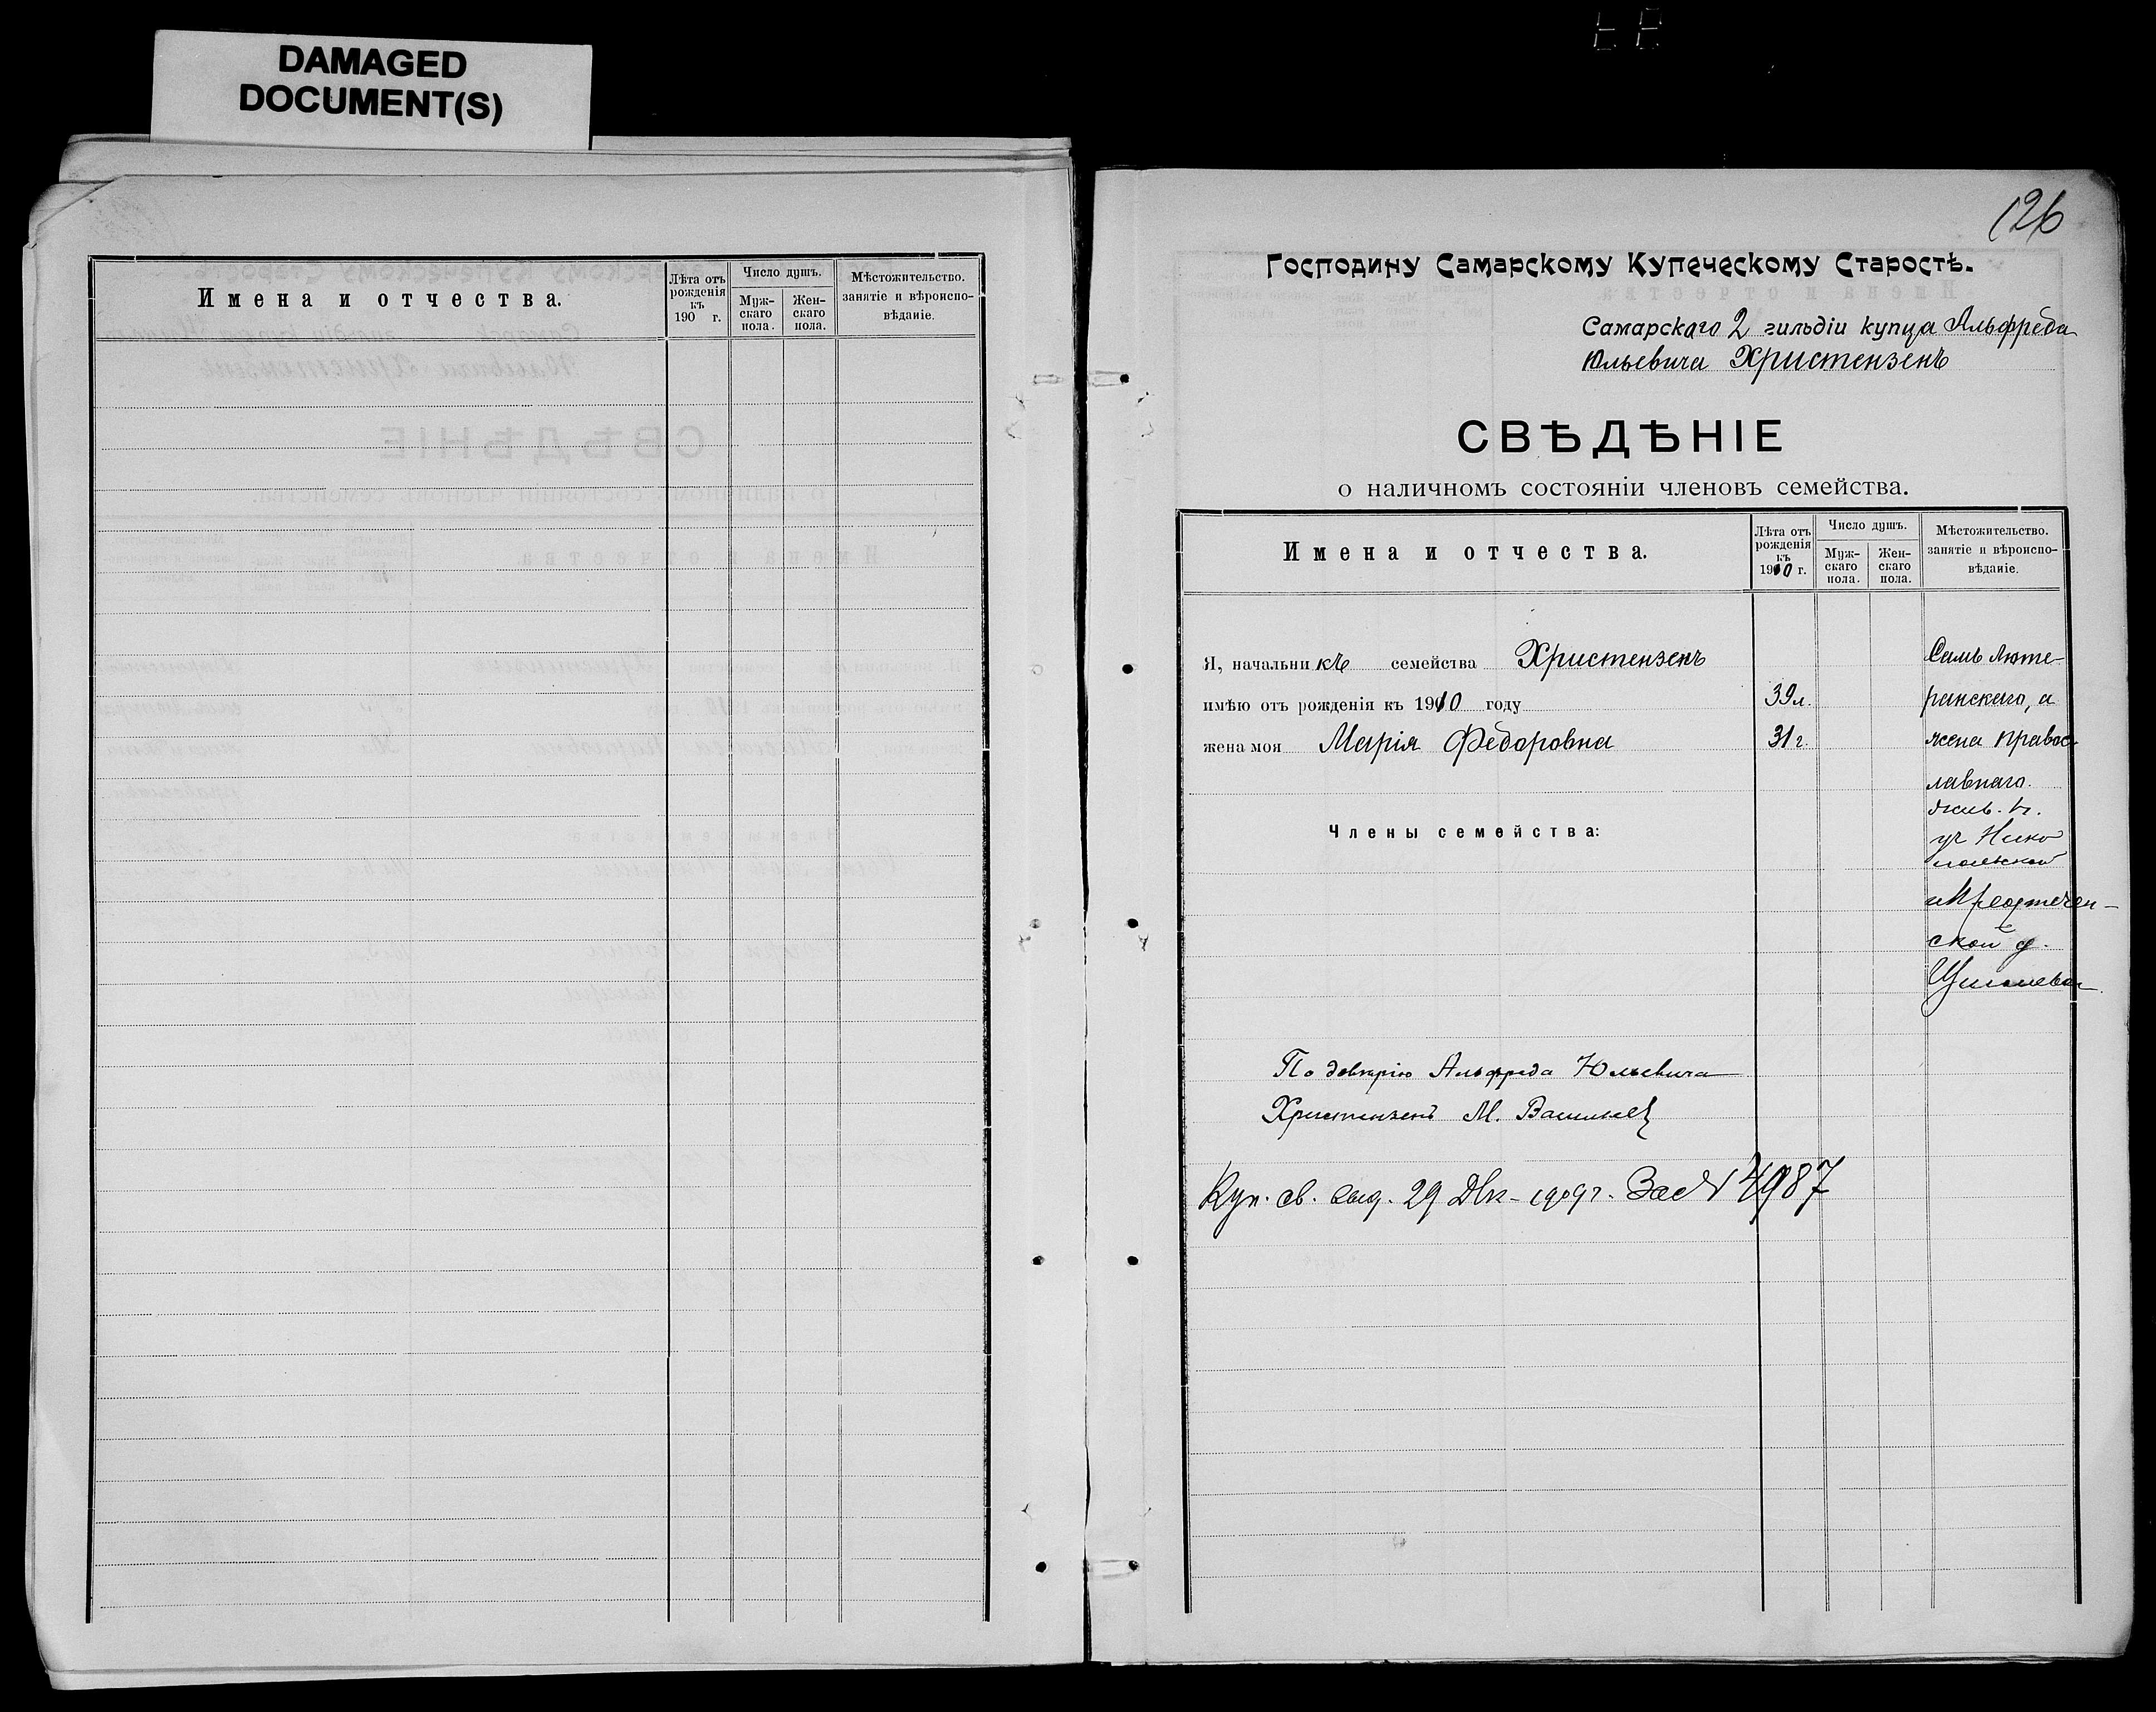 DAMAGED
DOCUMENT(S)
Имена и отчества.
Лѣта отъ рожденія къ 190 г.
Число душъ.
Муж-скаго пола.
Жен-скаго пола.
Мѣстожительство. занятіе и вѣроиспо-вѣданіе.
126
Господину Самарскому Купеческому Старостѣ.
Самарскаго 2 гильдіи купца Альфреда
Юльевича Христензенъ
СВѢДѢНІЕ
о наличномъ состояніи членовъ семейства.
Имена и отчества.
Лѣта отъ рожденія къ 1910 г.
Число душъ.
Муж-скаго пола.
Жен-скаго пола.
Мѣстожительство. занятіе и вѣроиспо-вѣданіе.
Я, начальникъ семейства Христензенъ
Самъ люте-
имѣю отъ рожденія къ 1910 году 39 л.
ранскаго, а
жена моя Марія Федоровна 31 г.
жена правос-
лавнаго.
жив. въ.
Члены семейства:
уг Нико
польской
и Предтечен-
ской д.
По довѣрію Альфреда Юльевича
Христензенъ М. Васильев
Куп. св. выд. 29 Дек - 1909 г. За № 4987